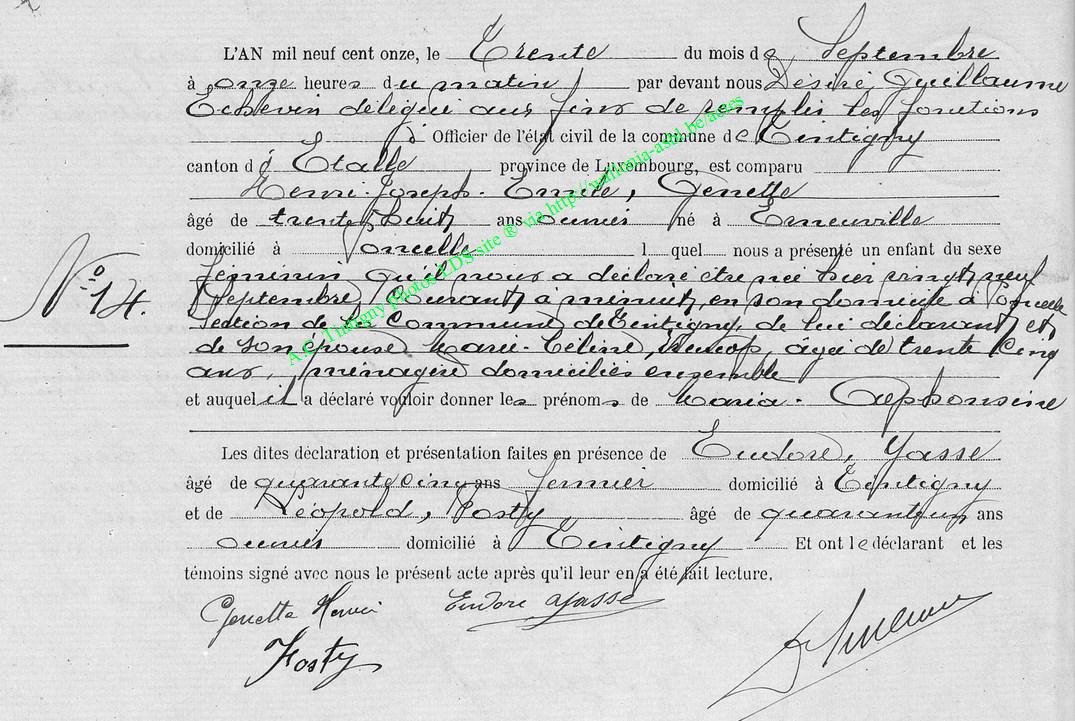 L'AN mil neuf cent onze, le Trente du mois de Septembre
à onze heures du matin par devant nous Désiré, Guillaume
Echevin délégué aux fins de remplir les fonctions
d' Officier de l'état civil de la commune de Tintigny
canton d'Etalle province de Luxembourg, est comparu
Henri-Joseph-Emile, Genette
âgé de trente huit ans né à Erneuville
domicilié à Poncelle lequel nous a présenté un enfant du sexe
féminin qu'il nous a déclaré être né hier vingt neuf
Septembre, Courant à minuit, en son domicile à Poncelle
section de la Commune de Tintigny, de lui déclarant et
de son épouse Marie-Céline, âgée de trente cinq
ans, ménagère domiciliés ensemble
et auquel il a déclaré vouloir donner les prénoms de Maria-Alphonsine
Les dites déclaration et présentation faites en présence de Eudore, Yasse
âgé de quarante cinq ans fermier domicilié à Tintigny
et de Léopold, Fosty âgé de quarante un ans
domicilié à Tintigny Et ont le déclarant et les
témoins signé avec nous le présent acte après qu'il leur en a été fait lecture.
Genette Henri Eudore Yasse
Fosty
N° 14.
A.C. Tintigny Photos LDS site ® via http://wallonia-asbl.be/actes